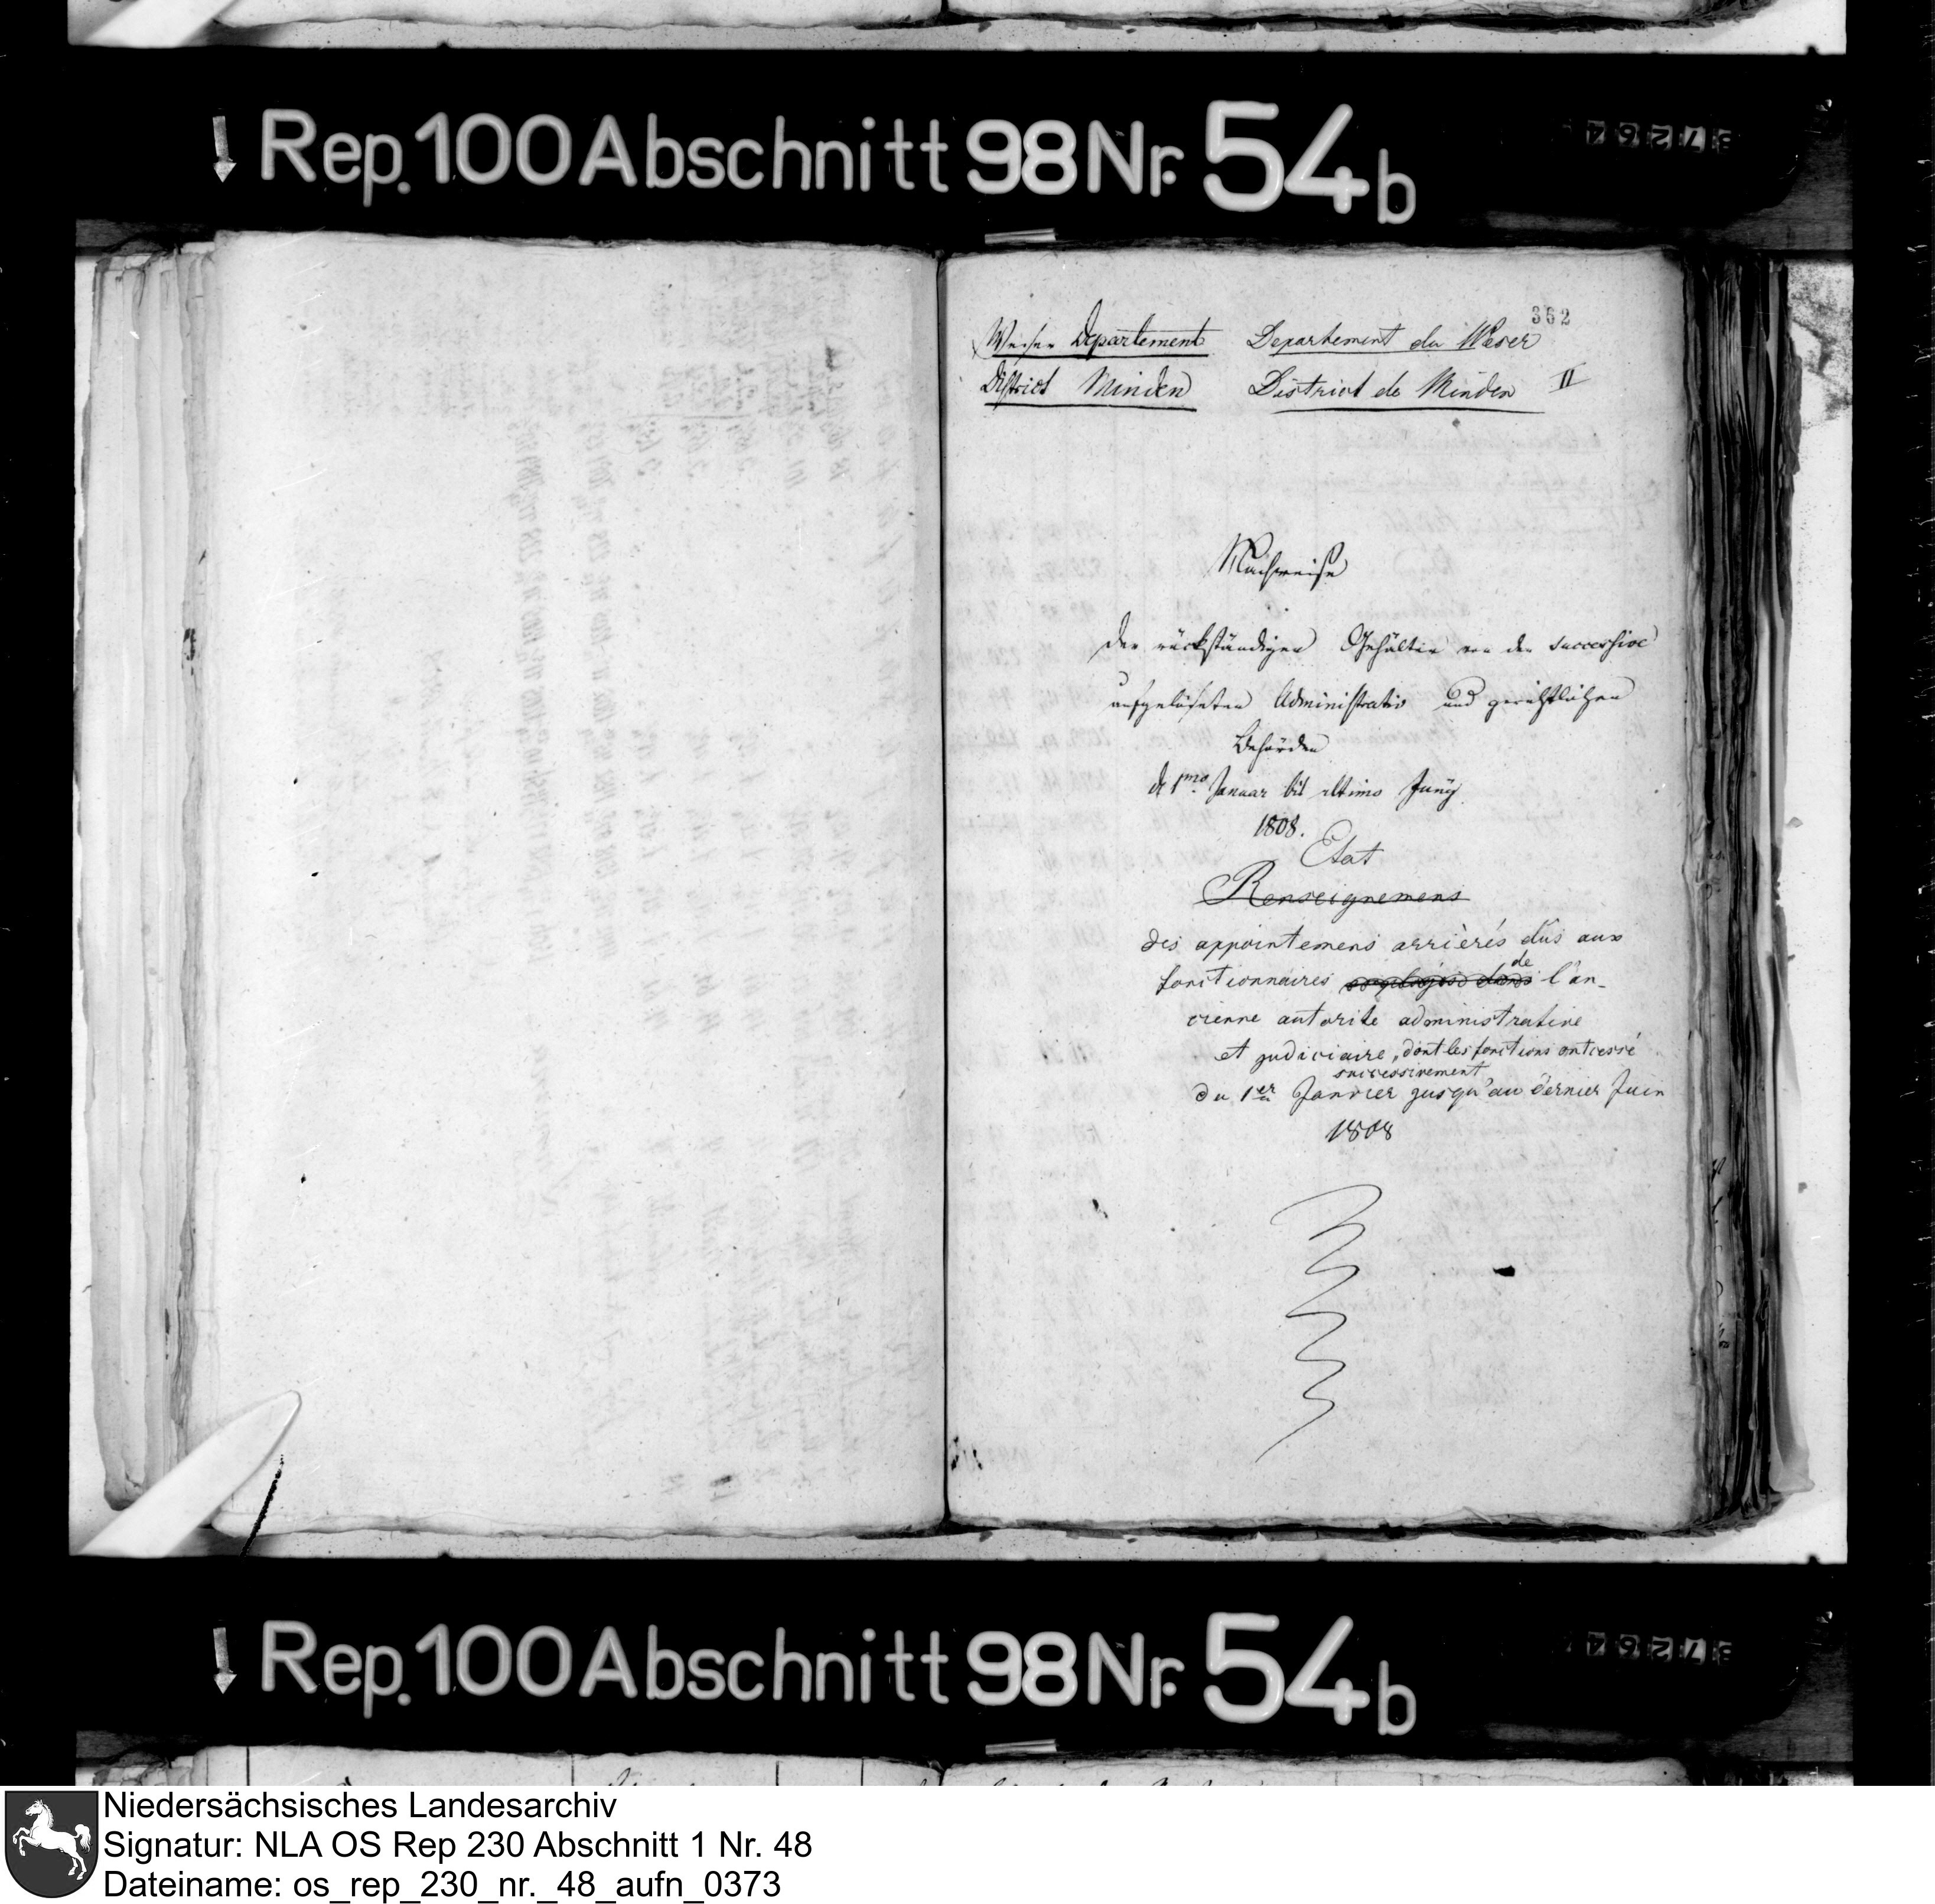 Rep. 100 Abschnitt 98 Nr. 54b
37264
362
Weser Departement
District Minden
Departement du Weser
District de Minden II
Nachweise
der rückständigen Gehälter von den successive
aufgelöseten Administrativ und gerichtlichen
Behörden
de 1mo Januar bis ultimo Juny
1808.
Etat
Renseignemens
des appointemens arrièrés dus aux
fonctionnaires de l'an-
cienne autorite administrative
et judiciaire, dont les fonctions ont cessé
successivement
du 1er Janvier jusqu'au dernier Juin
1808
Rep. 100 Abschnitt 98 Nr. 54b
37264
Niedersächsisches Landesarchiv
Signatur: NLA OS Rep 230 Abschnitt 1 Nr. 48
Dateiname: os_rep_230_nr._48_aufn_0373